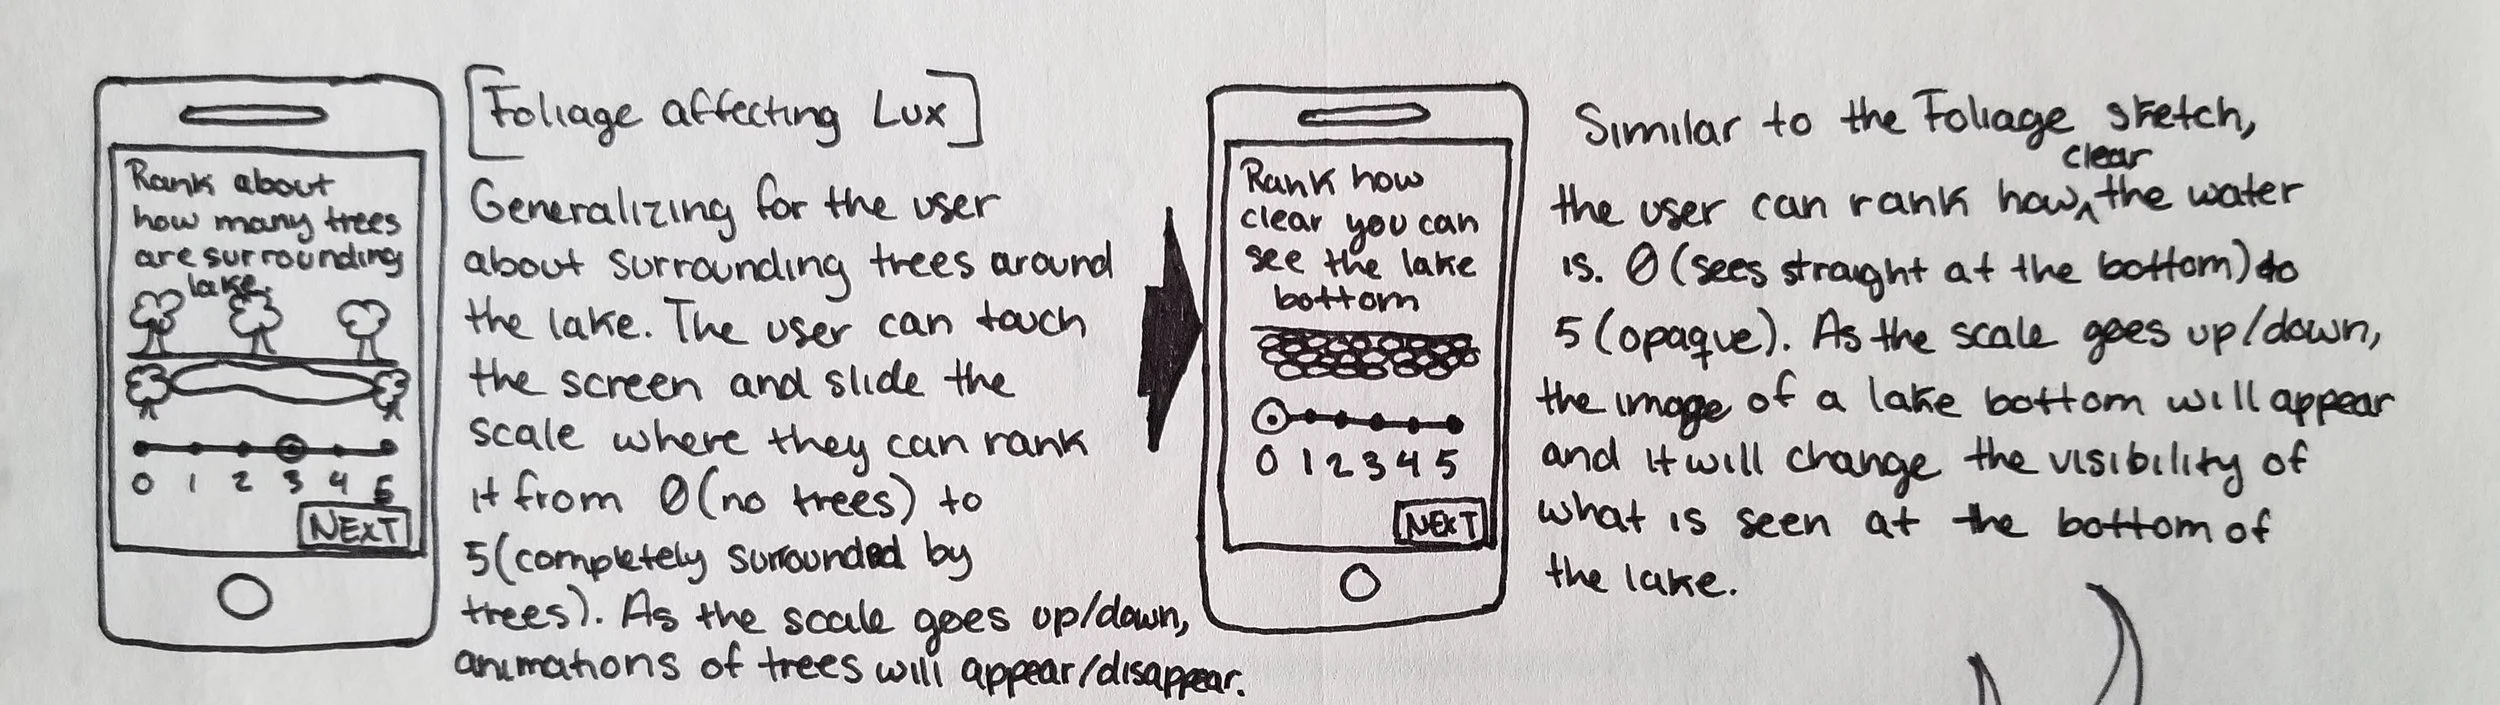 Rank about
how many trees
are surrounding
lake.
0 1 2 3 4 5
NEXT
[Foliage affecting Lux]
Generalizing for the user
about surrounding trees around
the lake. The user can touch
the screen and slide the
scale where they can rank
it from 0 (no trees) to
5 (completely surrounded by
trees). As the scale goes up/down,
animations of trees will appear/disappear.
Rank how
clear you can
see the lake
bottom
0 1 2 3 4 5
NEXT
Similar to the Foliage sketch,
the user can rank how clear the water
is. 0 (sees straight at the bottom) to
5 (opaque). As the scale goes up/down,
the image of a lake bottom will appear
and it will change the visibility of
what is seen at the bottom of
the lake.